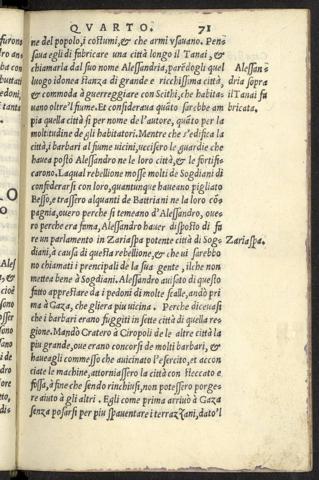 QVARTO. 71
ne del popolo, i costumi, & che armi vsauano. Pen
saua egli di fabricare una città longo il Tanai, &
chiamarla dal suo nome Alessandria, parẽdogli quel
luogo idonea stanza di grande e ricchissima città,
& commoda à guerreggiare con Scithi, che habita-
uano oltre'l fiume. Et considerauа quãto sarebbe am
pia quella città sì per nome de l'autore, quãto per la
moltitudine de gli habitatori. Mentre che s'edifica la
città, i barbari al fiume uicini, uccisero le guardie che
hauea posto Alessandro ne le loro città, & le fortifi
carono. Laqual rebellione mosse molti de Sogdiani di
confiderarsi con loro, quantunque haueano pigliato
Besso, e trassero alquanti de Battriani ne la loro cõ
pagnia, ouero perche si temeano d'Alessandro, oue
ro perche era fama, Alessandro hauer disposto di fa
re un parlamento in Zariaspa potente città di Sog-
diani, à causa di questa rebellione, & che ui sarebbo
no chiamati i prencipali de la sua gente, ilche non
mettea bene à Sogdiani. Alessandro auisato di questo
fatto apprestare da i pedoni di molte scalle, andò pri
ma à Gaza, che gliera piu uicina. Perche diceuasi
che i barbari erano fuggiti in sette città di quella re
gione. Mandò Cratero à Ciropoli de le altre città la
piu grande, oue erano concorsi de molti barbari, &
haueagli commesso che auicinato l'esercito, et accon
ciate le machine, attorniassero la città con steccato e
fossa, à fine che sendo rinchiusi, non potessero porge-
re aiuto à gli altri. Egli come prima arriuò à Gaza
senza posarsi per piu spauentare i terrazzani, dato'l
Alessan
dria sopra
il Tanai fa
bricata.
Zariaspa.